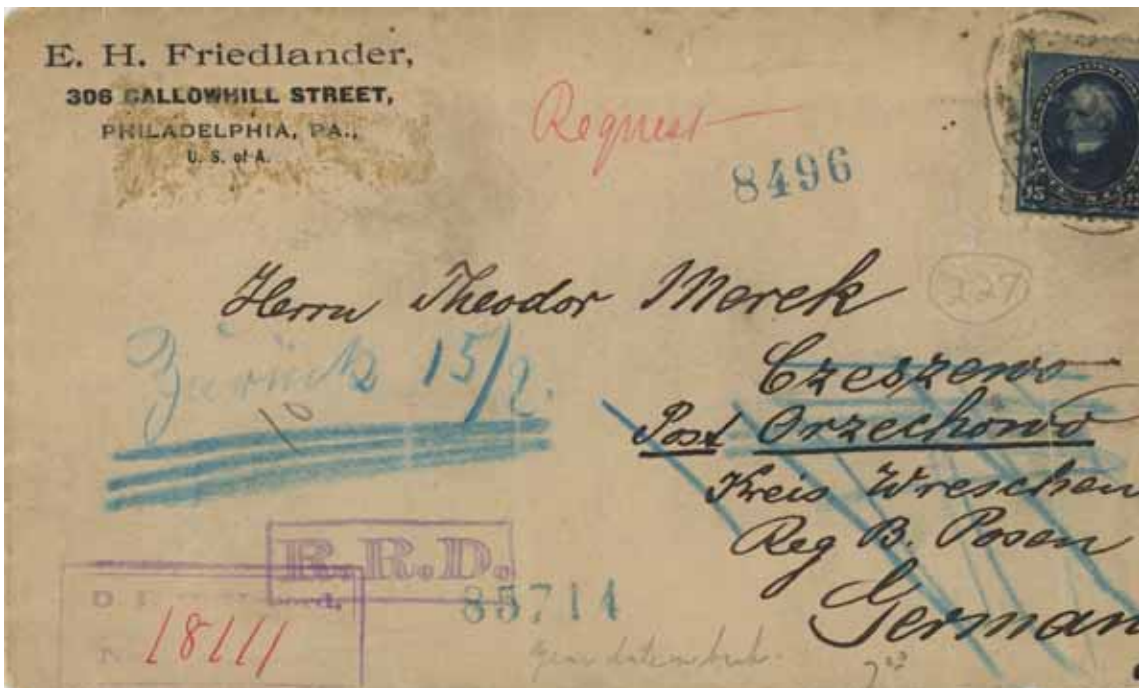 E. H. Friedlander,
306 CALLOWHILL STREET,
PHILADELPHIA, PA.,
U. S. of A.
Request
8496
15
Herrn Theodor Merek
227
Zurück 15/2.
10
Czeszewo
Post Orzechowo
Kreis Wreschen
Reg B. Posen
German
R.R.D.
85714
18111